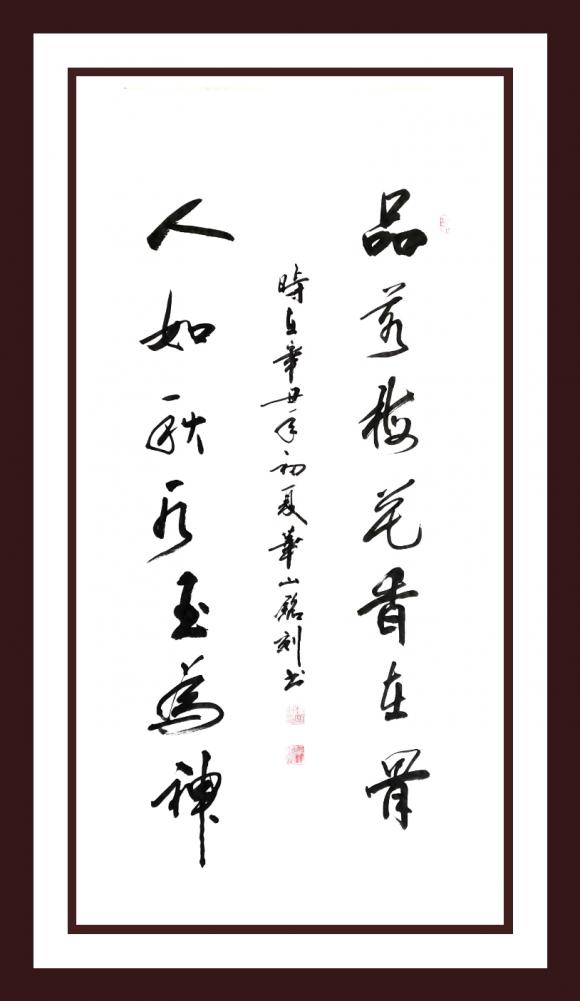 品若梅花香在骨
人如秋水玉為神
時在辛丑年初夏華山銘刻书